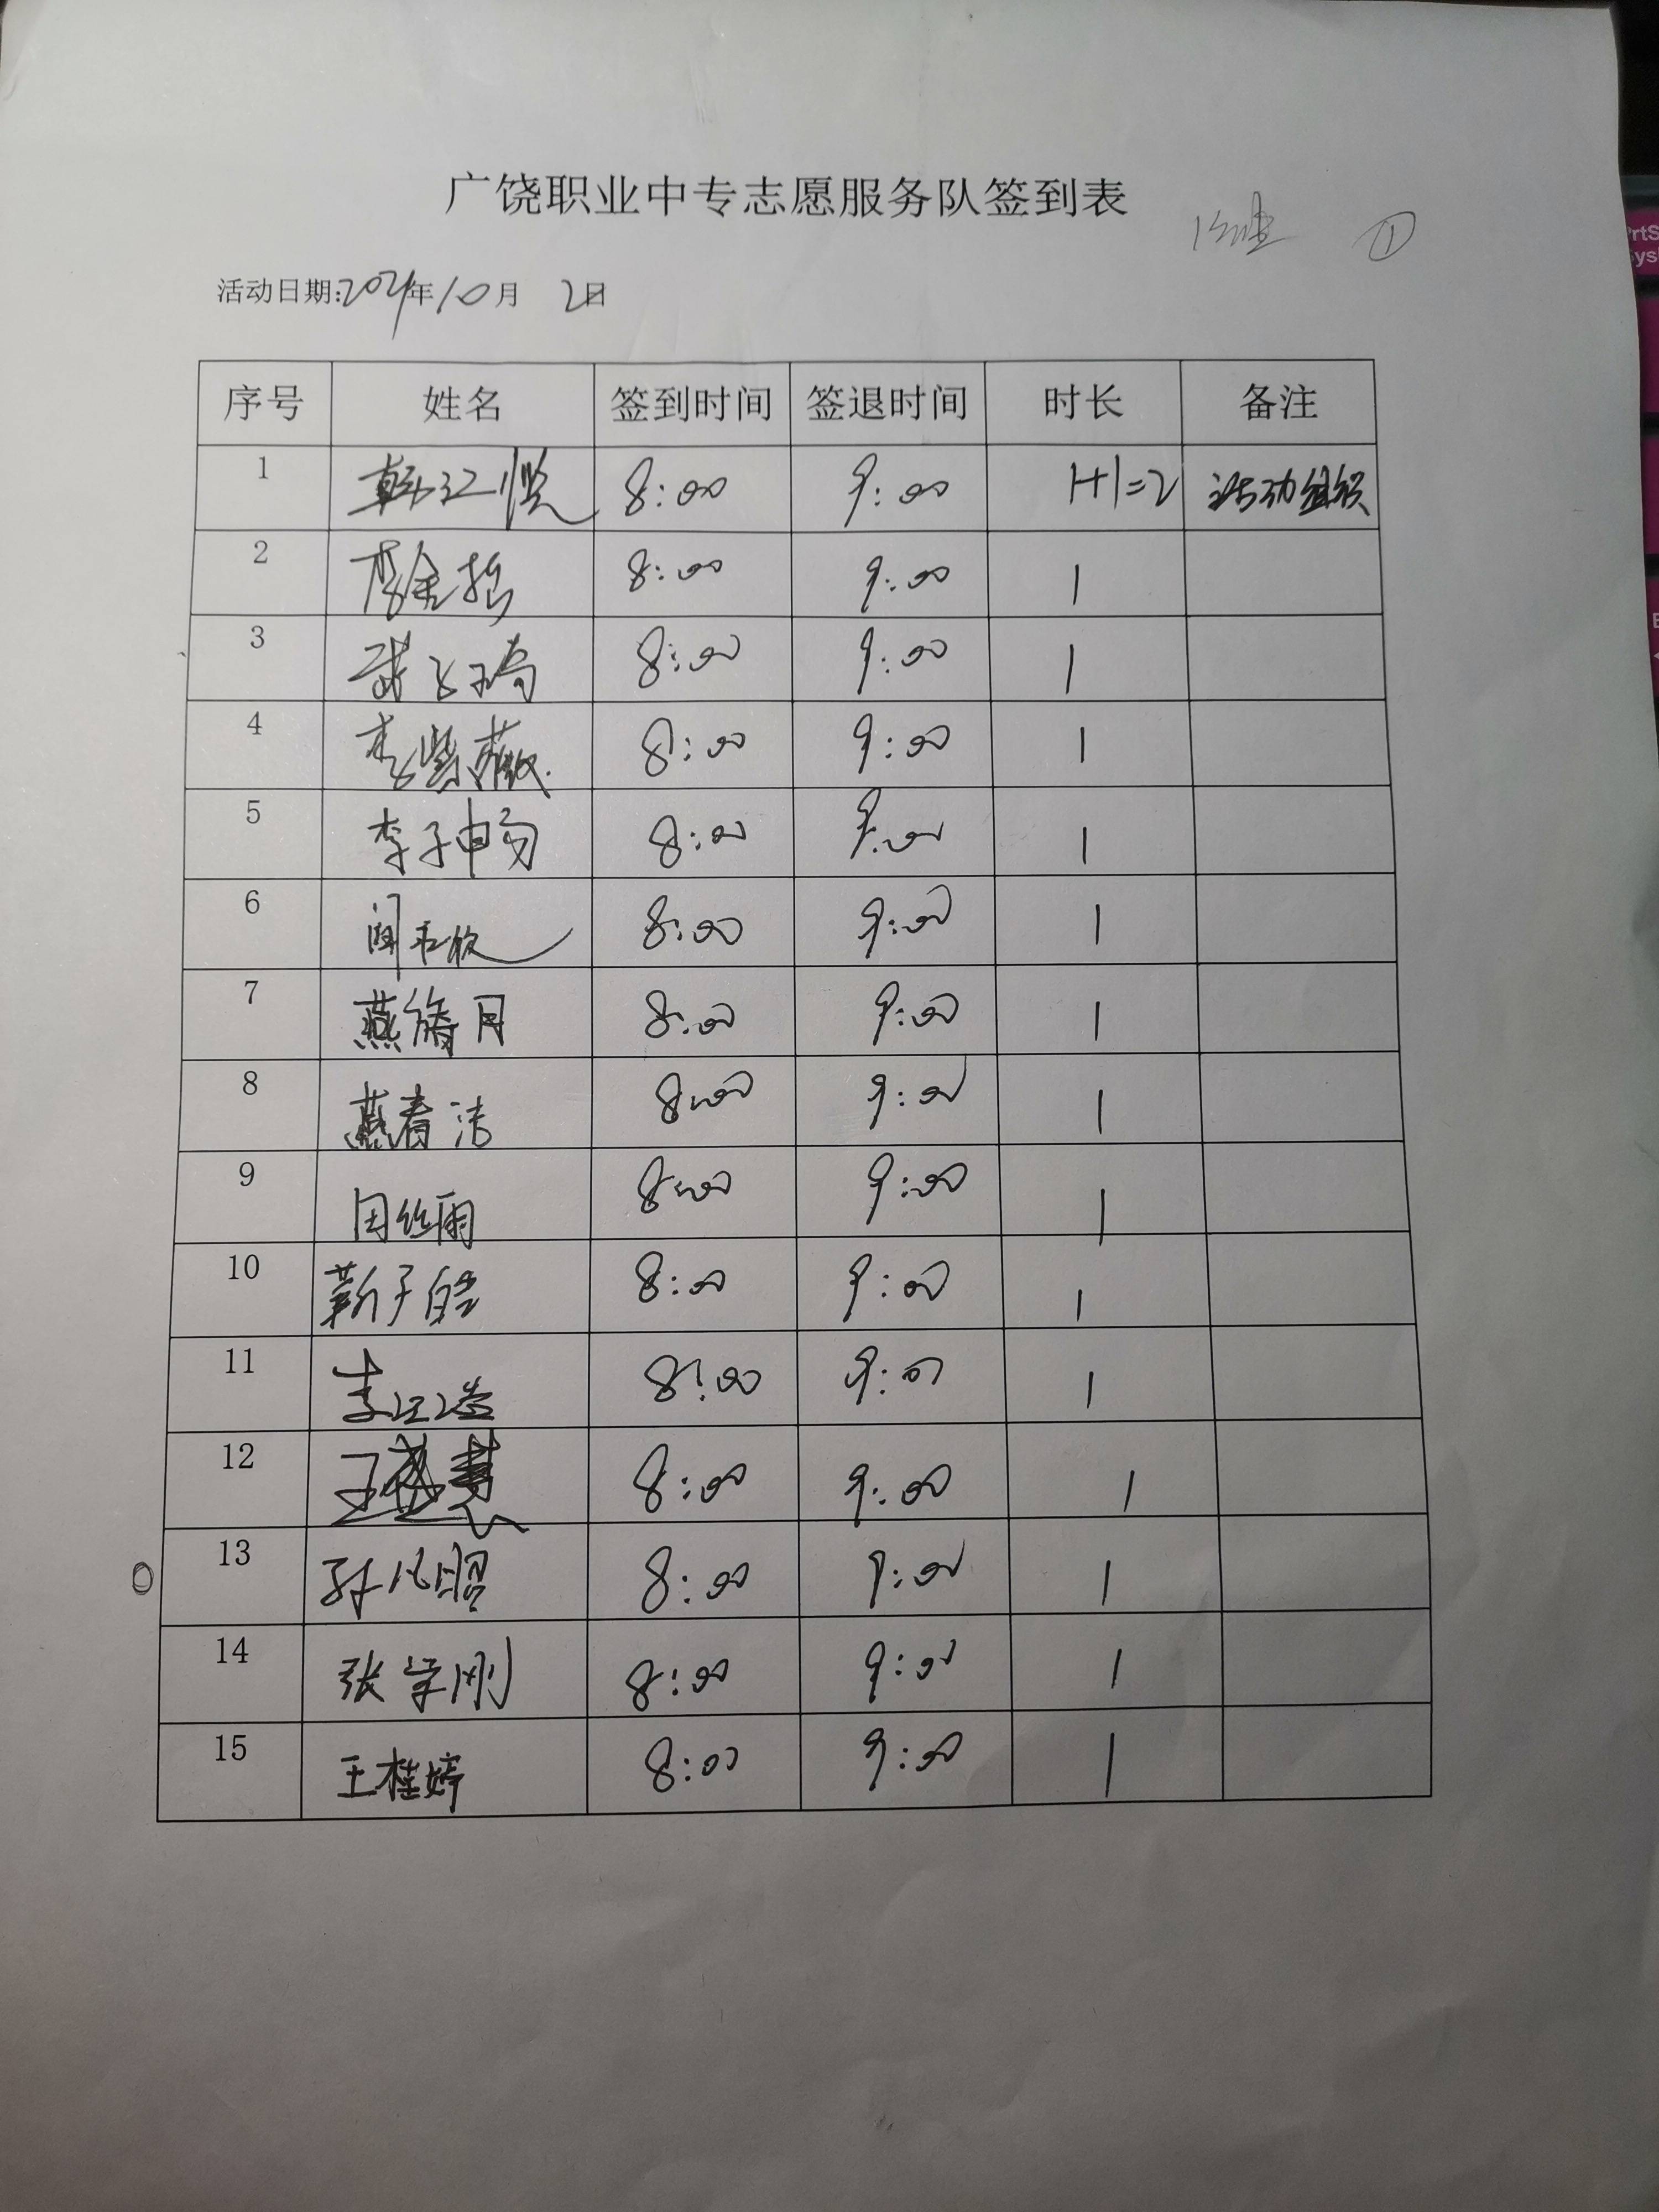 广饶职业中专志愿服务队签到表
①
活动日期:2024年10月2日
序号 姓名 签到时间 签退时间 时长 备注
1 韩江悦 8:00 9:00 1+1=2 活动组织
2 李金 8:00 9:00 1
3 8:00 9:00 1
4 李紫薇 8:00 9:00 1
5 李子畅 8:00 9:00 1
6 8:00 9:00 1
7 燕 月 8:00 9:00 1
8 燕春洁 8:00 9:00 1
9 田丝雨 8:00 9:00 1
10 靳子皓 8:00 9:00 1
11 李 8:00 9:00 1
12 王 8:00 9:00 1
13 孙凡昭 8:00 9:00 1
14 张学刚 8:00 9:00 1
15 王桂婷 8:00 9:00 1